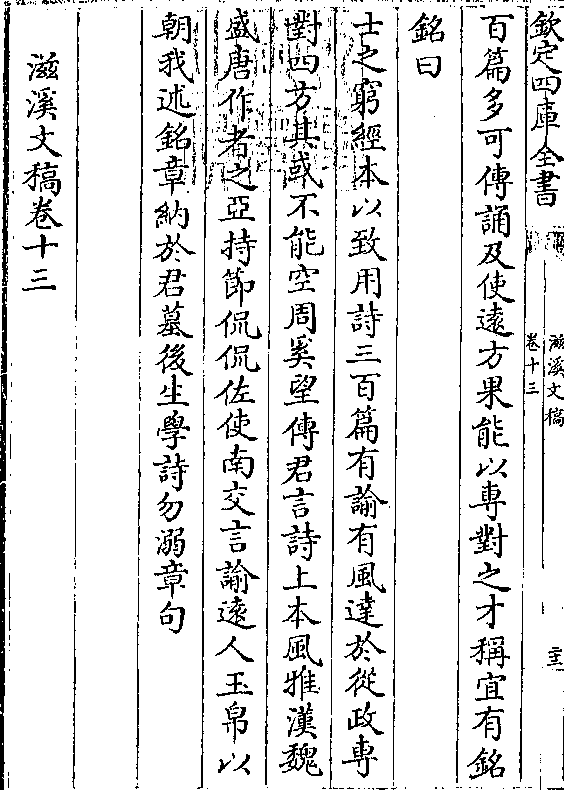 欽定四庫全書
滋溪文稿
卷十三
百篇多可傳誦及使遠方果能以専對之才稱宜有銘
銘曰
士之窮經本以致用詩三百篇有諭有風達於從政専
對四方其或不能空周奚望傳君言詩上本風雅漢魏
盛唐作者之亞持節侃侃佐使南交言諭遠人玉帛以
朝我述銘章納於君墓後生學詩勿溺章句
滋溪文稿卷十三